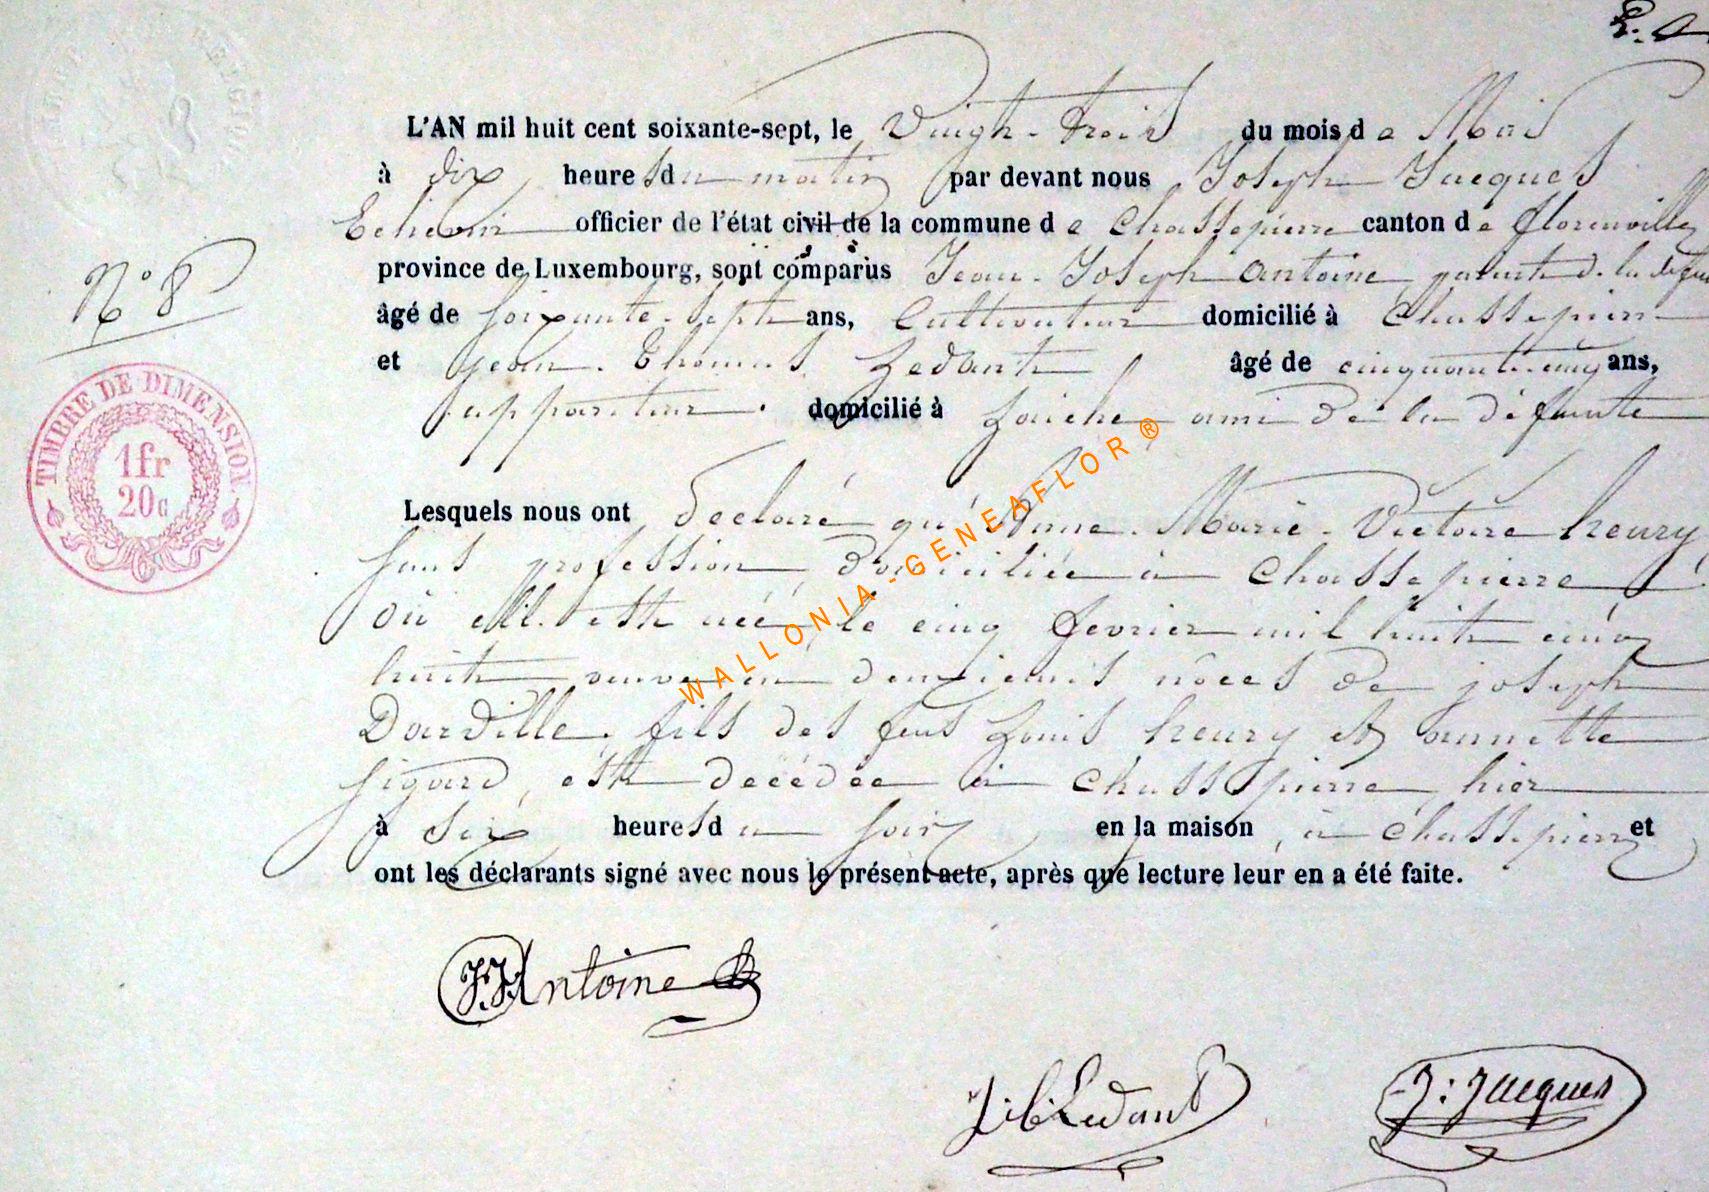 L'AN mil huit cent soixante-sept, le Vingt-trois du mois de Mai
à dix heures du matin par devant nous Joseph Jacques
Echevin officier de l'état civil de la commune de Chassepierre canton de florenville
province de Luxembourg, sont comparus Jean-Joseph antoine, de la
âgé de soixante-sept ans, Cultivateur domicilié à Chassepierre
et jean-Thomas Ledant âgé de ans,
appariteur. domicilié à Laiche ami de la défunte
N° 8
TIMBRE DE DIMENSION
1fr
20c
Lesquels nous ont déclaré qu'Anne-Marie-Victoire henry,
sans profession, domiciliée à Chassepierre
où elle est née, le cinq fevrier mil huit cent
huit veuve en deuxiemes nôces de joseph
Dardille, fils des feus Louis henry et annette
sigard, est decédée à chassepierre, hier
à six heures du soir en la maison, à chassepierre et
ont les déclarants signé avec nous le présent acte, après que lecture leur en a été faite.
J.J. Antoine
Ledant
J: Jacques
WALLONIA-GENEAFLOR®